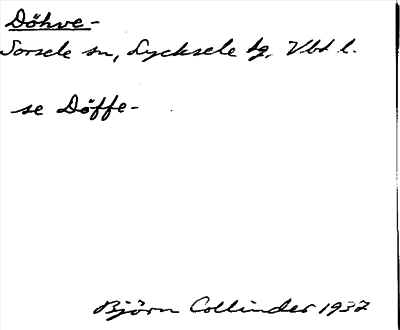 Döhve-
Sorsele sn, Lycksele tg, Vbt l.
se Döffe-
Björn Collinder 1937